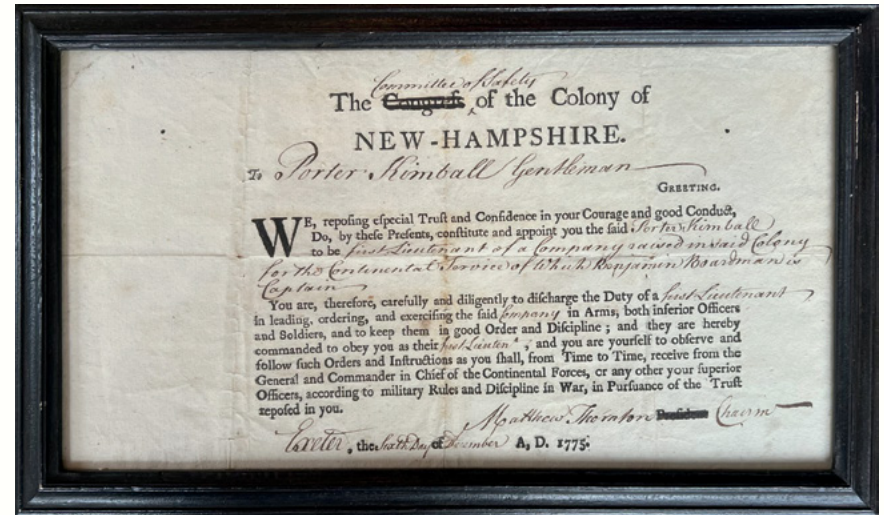 Committee of Safety
The Congreſs ‸ of the Colony of
NEW-HAMPSHIRE.
To Porter Kimball Gentleman
GREETING.
WE, repoſing eſpecial Truſt and Confidence in your Courage and good Conduct,
Do, by theſe Preſents, conſtitute and appoint you the ſaid Porter Kimball
to be first Lieutenant of a Company raised in said Colony
for the Continental Service of Which Benjamin Boardman is
Captain
You are, therefore, carefully and diligently to diſcharge the Duty of a first Lieutenant
in leading, ordering, and exerciſing the ſaid Company in Arms, both inferior Officers
and Soldiers, and to keep them in good Order and Diſcipline ; and they are hereby
commanded to obey you as their first Lieutent ; and you are yourſelf to obſerve and
follow ſuch Orders and Inſtructions as you ſhall, from Time to Time, receive from the
General and Commander in Chief of the Continental Forces, or any other your ſuperior
Officers, according to military Rules and Diſcipline in War, in Purſuance of the Truſt
repoſed in you.
Matthew Thornton Preſident Chairm
Exeter, the Sixth Day of December A, D. 1775.